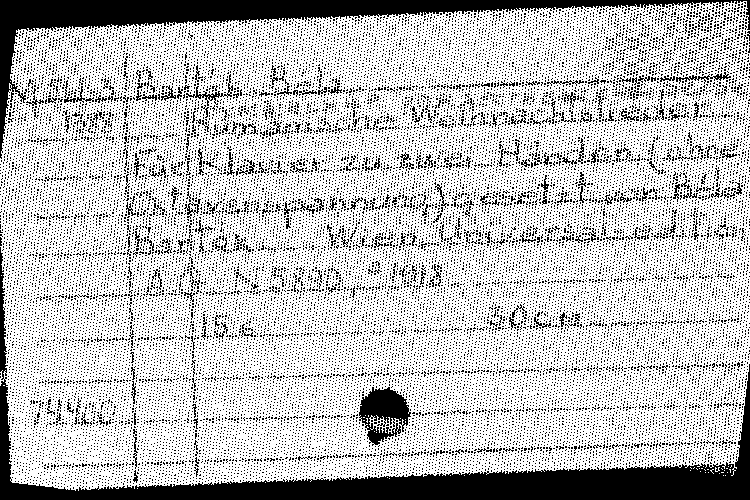 Bartók Béla
Rumänische Weihnachtslieder
Für Klavier zu zwei Händen (ohne
Oktavenspannung) gesetzt von Béla
Bartók. Wien, Universal-editi
A.G. N 5890, c 1918
15 c 30 cm
74400